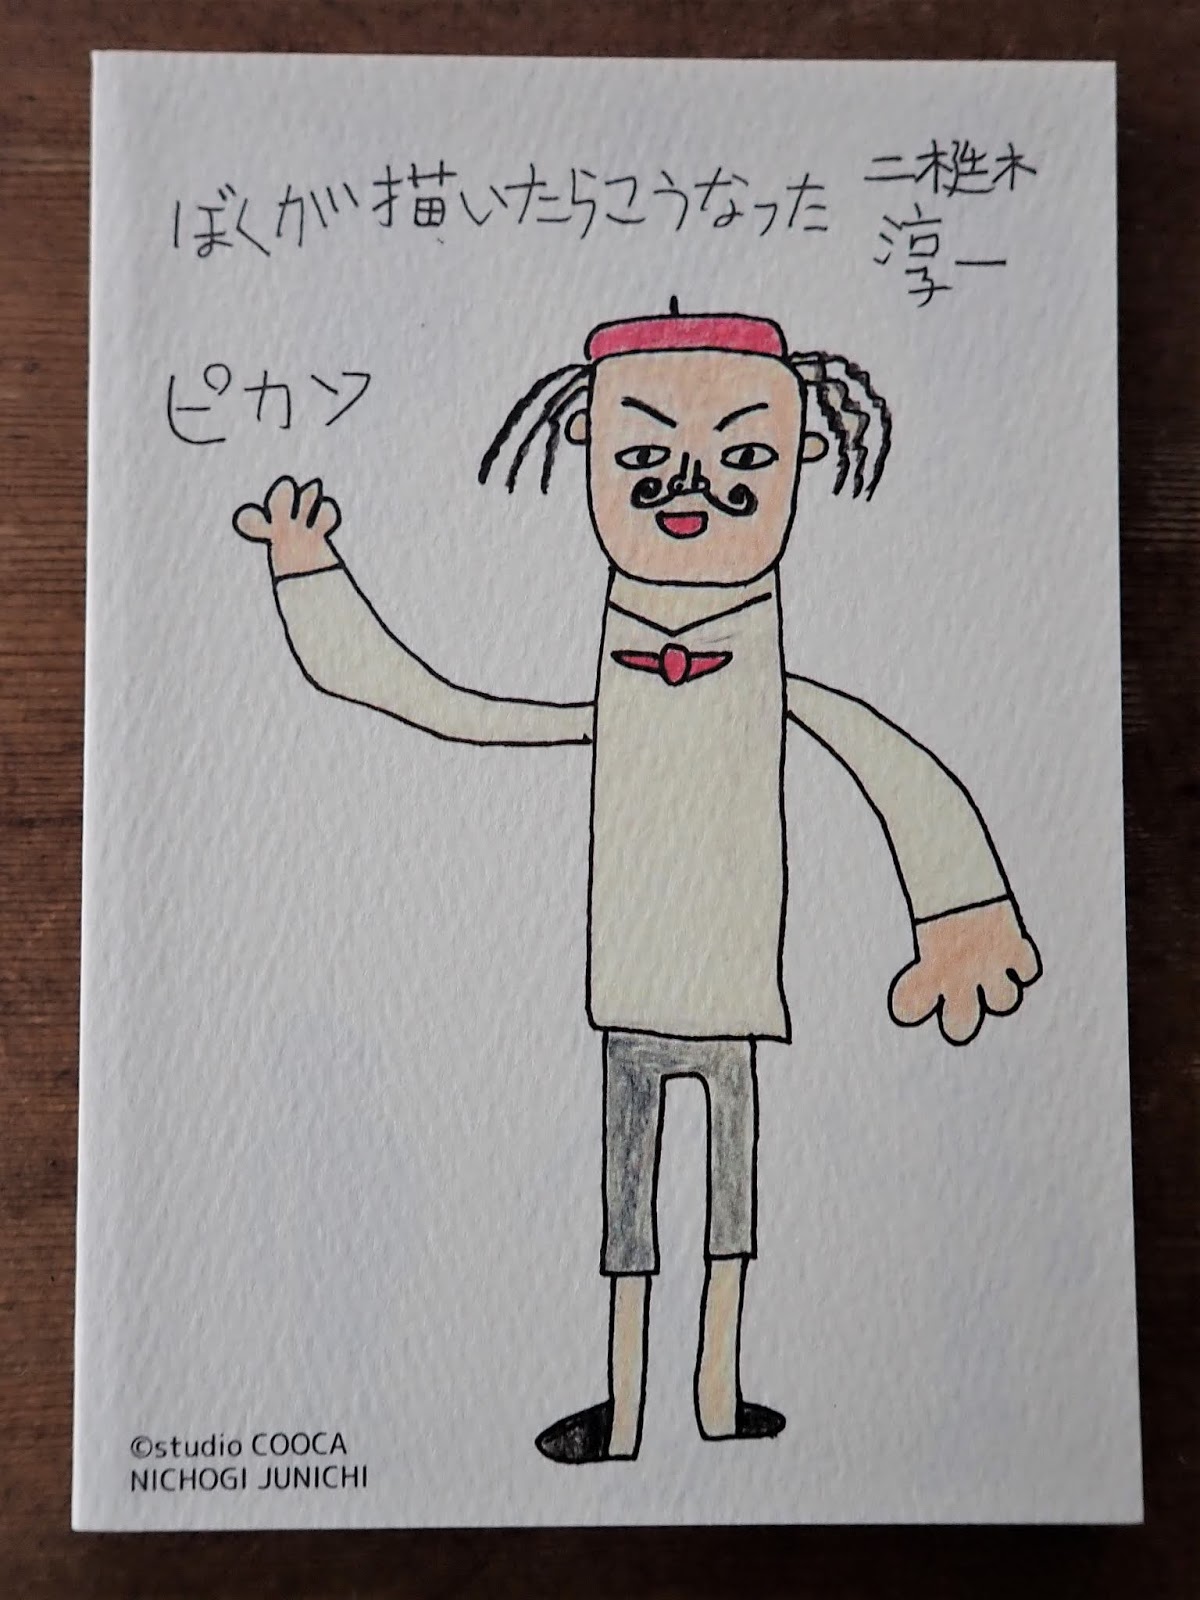 ぼくが描いたらこうなった
二梃木
淳一
ピカソ
©studio COOCA
NICHOGI JUNICHI